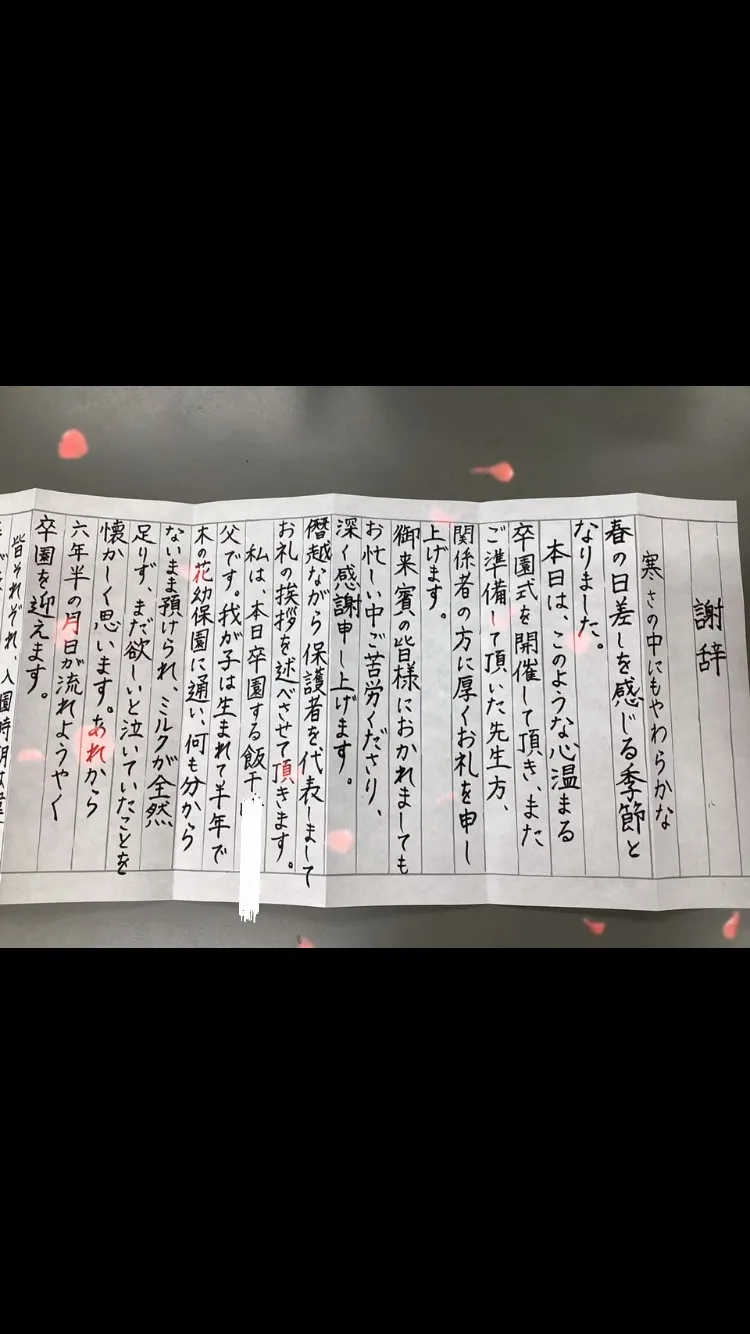 謝辞
寒さの中にもやわらかな
春の日差しを感じる季節と
なりました。
本日は、このような心温まる
卒園式を開催して頂き、また
ご準備して頂いた先生方、
関係者の方に厚くお礼を申し
上げます。
御来賓の皆様におかれましても
お忙しい中ご苦労くださり、
深く感謝申し上げます。
僭越ながら保護者を代表しまして
お礼の挨拶を述べさせて頂きます。
私は、本日卒園する飯干
父です。我が子は生まれて半年で
木の花幼保園に通い、何も分から
ないまま預けられ、ミルクが全然
足りず、まだ欲しいと泣いていたことを
懐かしく思います。あれから
六年半の月日が流れようやく
卒園を迎えます。
皆それぞれ、入園時期は